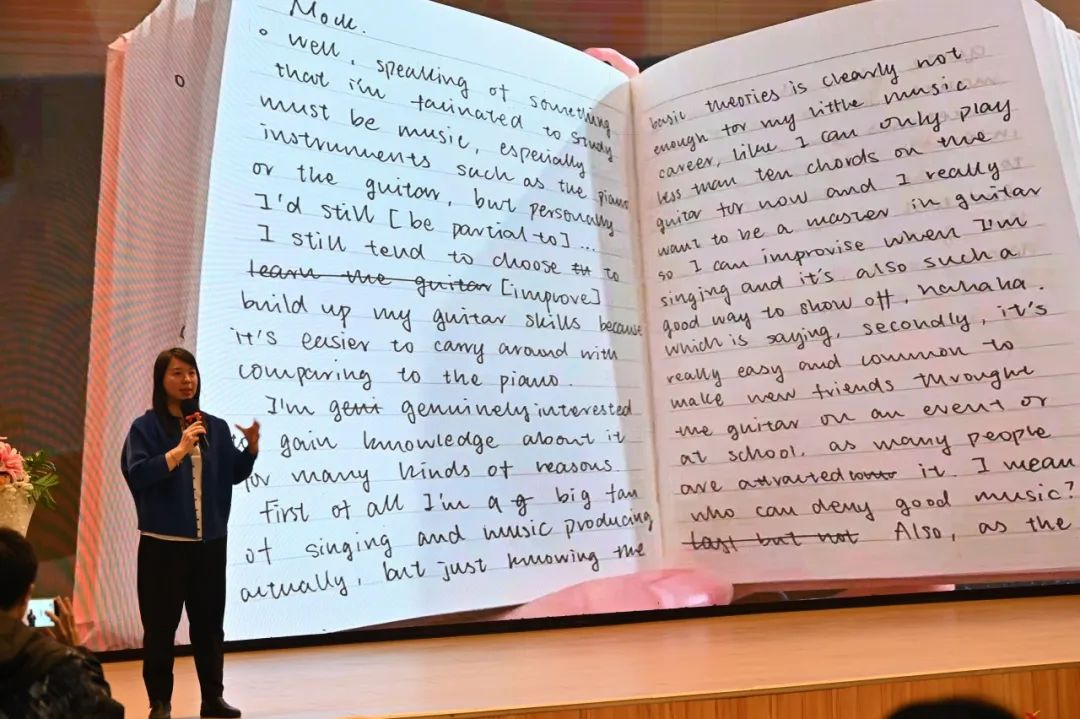 Mode.
well, speaking of something
that i'm facinated to study
must be music, especially
instruments such as the piano
or the guitar, but personally
I'd still [be partial to] ...
I still tend to choose to to
learn the guitar [improve]
build up my guitar skills because
it's easier to carry around with
comparing to the piano.
I'm geni genuinely interested
to gain knowledge about it
for many kinds of reasons.
First of all I'm a g big fan
of singing and music producing
actually, but just knowing the
basic theories is clearly not
enough for my little music
career, like I can only play
less than ten chords on the
guitar for now and I really
want to be a master in guitar
so I can improvise when I'm
singing and it's also such a
good way to show off, hahaha.
which is saying, secondly, it's
really easy and common to
make new friends throught
the guitar on an event or
at school, as many people
are attracted to it. I mean
who can deny good music?
last but not Also, as the